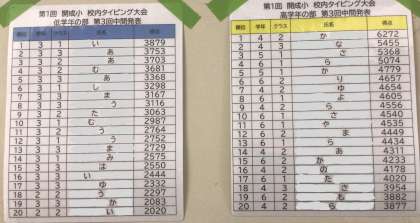 第1回 開成小 校内タイピング大会
低学年の部 第3回中間発表
順位 学年 クラス 氏名 得点
1 3 1 い 3879
2 3 3 あ 3753
3 3 3 あ 3703
4 3 2 む 3681
5 3 3 あ 3368
6 3 1 し 3298
7 3 3 ま 3167
8 3 3 う 3116
9 3 2 た 3063
10 3 1 む 2987
11 3 2 う 2764
12 3 3 う 2752
13 3 3 ま 2729
14 3 1 み 2575
15 3 3 は 2550
16 3 3 い 2444
17 3 3 ゆ 2332
18 2 2 う 2297
19 3 3 か 2083
20 3 1 い 2020
第1回 開成小 校内タイピング大会
高学年の部 第3回中間発表
順位 学年 クラス 氏名 得点
1 4 2 か 6272
2 4 3 な 5455
3 4 3 さ 5368
4 6 1 ら 5074
5 5 1 か 4779
6 6 2 り 4657
7 4 2 ゆ 4654
8 6 1 よ 4605
9 4 4 さ 4556
10 5 1 さ 4540
11 6 1 や 4535
12 6 2 ま 4449
13 6 1 ら 4434
14 4 2 あ 4311
15 6 2 か 4233
16 4 2 の 4178
17 6 1 た 4020
18 4 3 さ 3954
19 6 2 む 3882
20 6 2 ら 3877